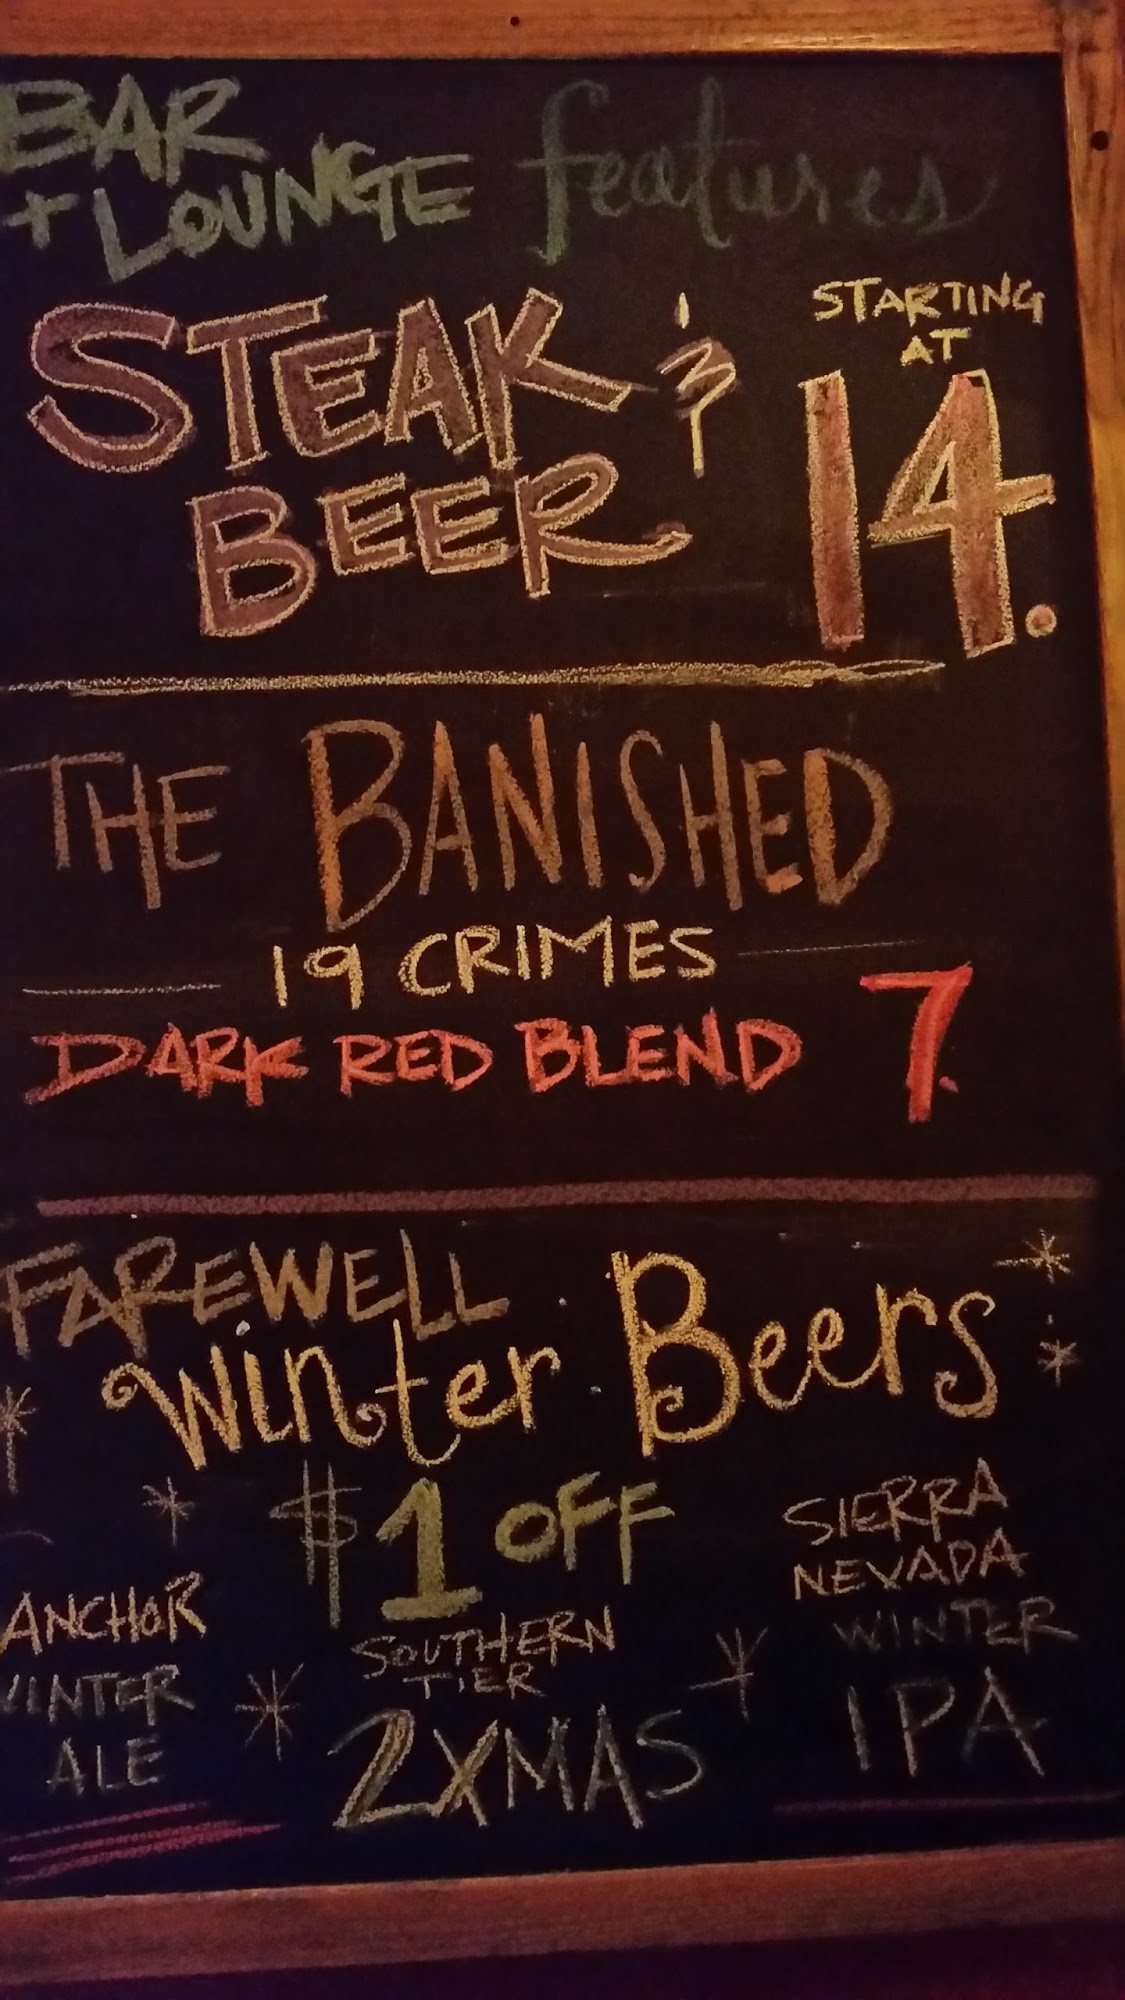 BAR
+ LOUNGE features
STEAK &
BEER
STARTING
AT
14.
THE BANISHED
19 CRIMES
DARK RED BLEND 7.
FAREWELL
Winter Beers
$1 OFF
ANCHOR
WINTER
ALE
SOUTHERN
TIER
2XMAS
SIERRA
NEVADA
WINTER
IPA